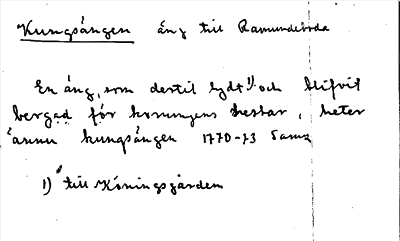 Kungsängen äng till Ramundeboda
En äng, som dertil lydt¹⁾ och blifvit
bergad för konungens hestar, heter
ännu kungsängen 1770-73
1) till Kóningsgården